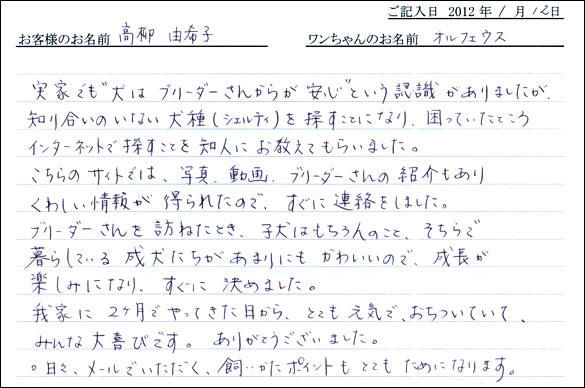 ご記入日 2012年 1月 12日
お客様のお名前 高柳 由希子 ワンちゃんのお名前 オルフェウス
実家でも"犬はブリーダーさんからが安心"という認識がありましたが、
知り合いのいない犬種(シェルティ)を探すことになり、困っていたところ
インターネットで探すことを知人にお教えてもらいました。
こちらのサイトでは、写真、動画、ブリーダーさんの紹介もあり
くわしい情報が得られたので、すぐに連絡をしました。
ブリーダーさんを訪ねたとき、子犬はもちろんのこと、そちらで
暮らしている成犬たちがあまりにもかわいいので、成長が
楽しみになり、すぐに決めました。
我家に2ヶ月でやってきた日から、とても元気で、おちついていて、
みんな大喜びです。ありがとうございました。
。日々、メールでいただく、飼いかたポイントもとてもためになります。